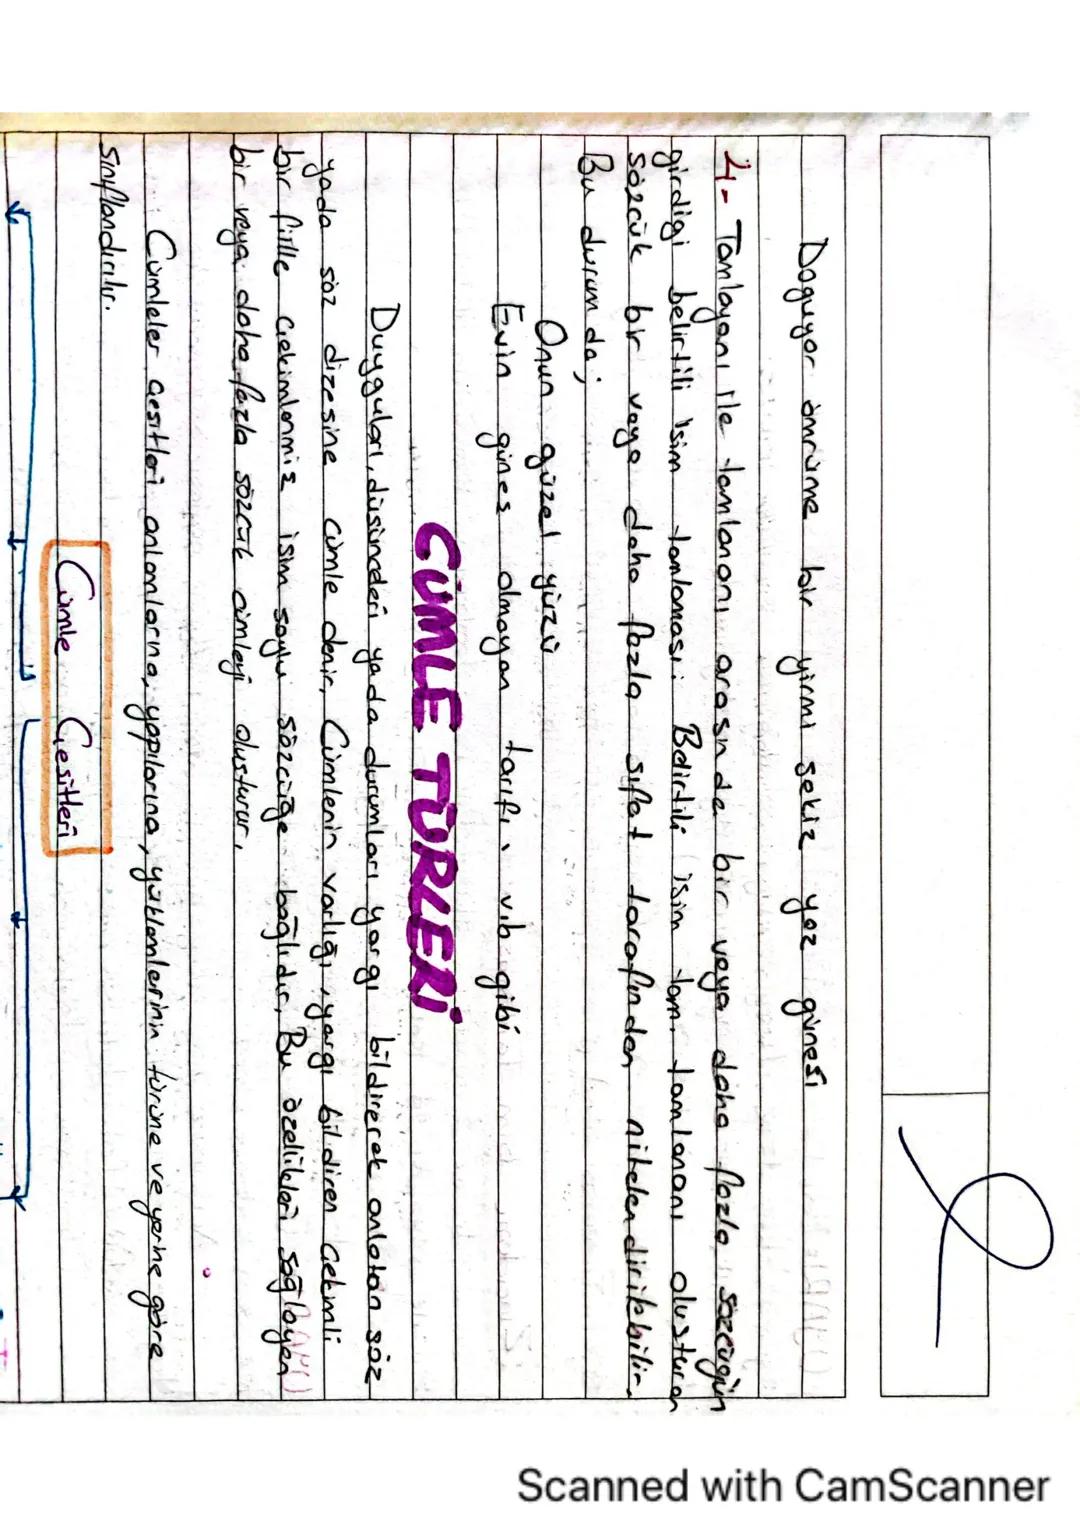 Doğuyor ömrüme bir yirmi sekiz yaz güneşi
4- Tamlayanı ile tamlananı arasında bir veya daha fazla sözcüğün
girdiği belirtili isim tamlaması: Belirtili isim tam. tamlananı oluşturan
sözcük bir veya daha fazla sıfat tarafından nitelendirikbilir.
Bu durumda;
Onun güzel yüzü
Evin güneş olmayan tarafı, vb gibi
CÜMLE TÜRLERİ
Duyguları, düşünceleri yada durumları yargı bildirerek anlatan söz
yada söz dizesine cümle denir. Cümlenin varlığı, yargı bildiren çekimli
bir fiille çekimlenmiş isim soylu sözcüğe bağlıdır. Bu özellikleri sağlayan
bir veya daha fazla sözcük cümleyi oluşturur.
Cümleler çeşitleri anlamlarına, yapılarına, yüklemlerinin türüne ve yerine göre
sınıflandırılır.
Cümle Çeşitleri
Scanned with CamScanner